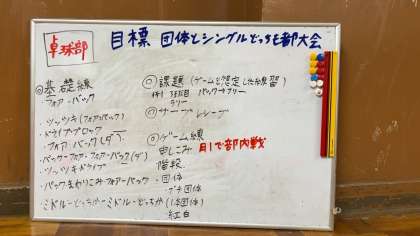 卓球部
目標 団体とシングルどっちも都大会
◎基礎練
・フォア-バック
・ツッツキ(フォア,バック)
・ドライブブロック
フォア バック(ダ)
・バック-フォア-フォア-バック(ダ)
・ツッツキドライブ
・バックまわりこみフォア-バック
・ミドル-どっちか-ミドル-どっちか
◎課題(ゲームを想定した練習)
例) 3球目 バックサーブ
ラリー
◎サーブ レシーブ
◎ゲーム練
申しこみ 月1で部内戦
階段
・団体
プチ団体
(1本団体)
紅白